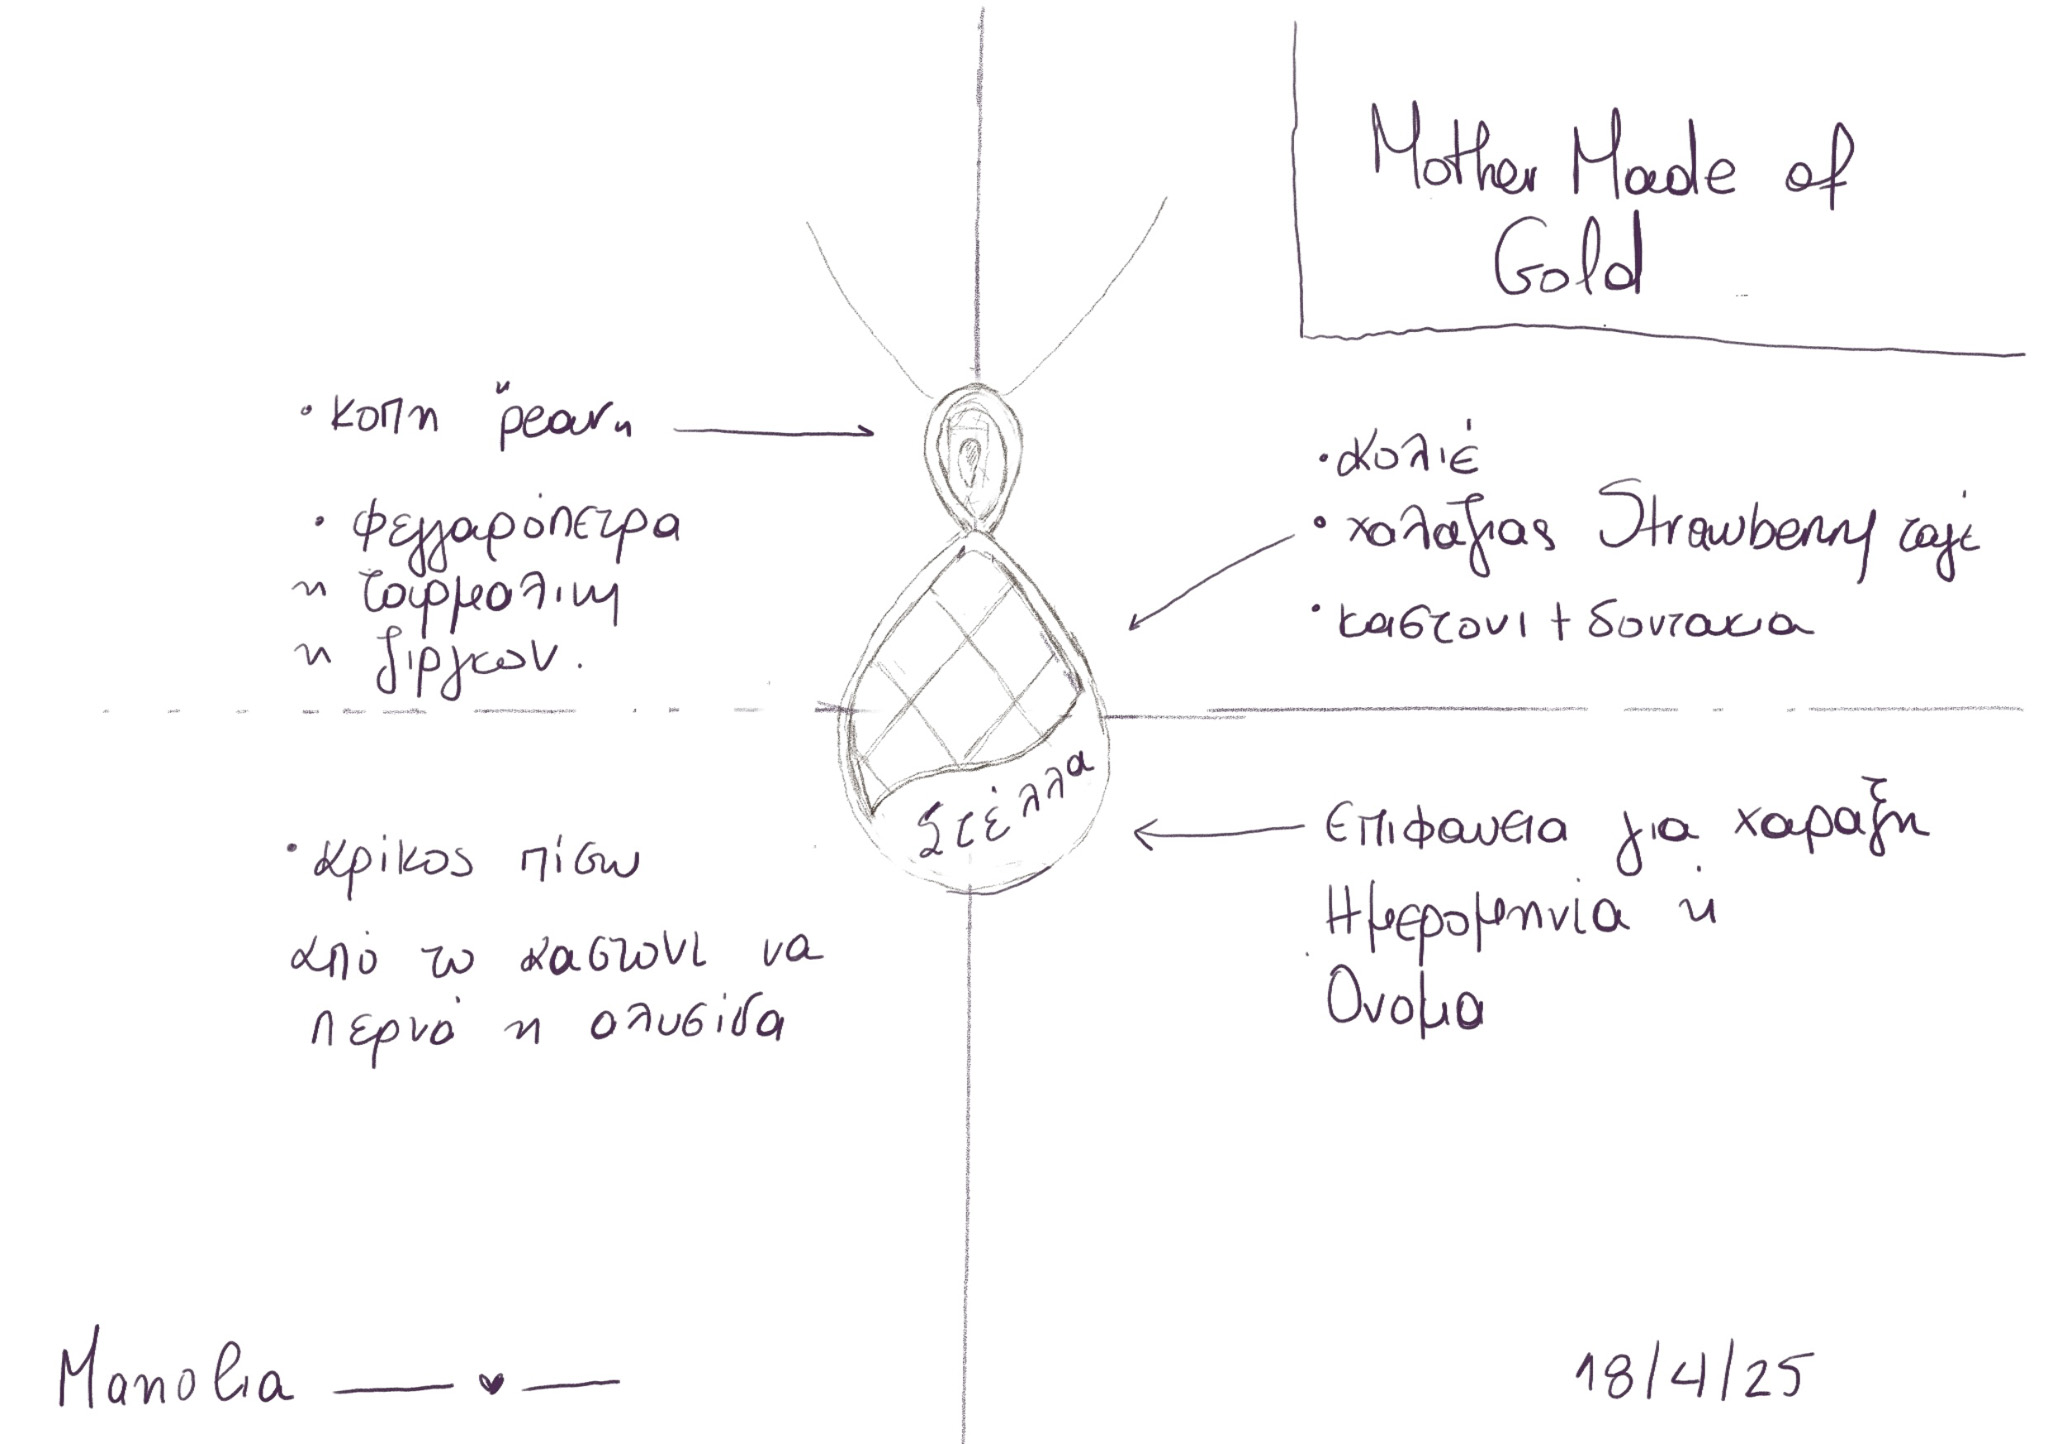 Mother Made of
Gold
• κοπη "ρεαρ η
• φεγγαρόπετρα
η τουρμαλινη
η ζιργκων.
• κολιέ
• χαλαζιας Strawberry ταγέ
• καστονι + δοντακια
Στέλλα
• κρίκος πίσω
από το καστονι να
περνά η αλυσίδα
Επιφανεια για χαραξη
Ημερομηνία ή
Ονομα
Manolia
18/4/25